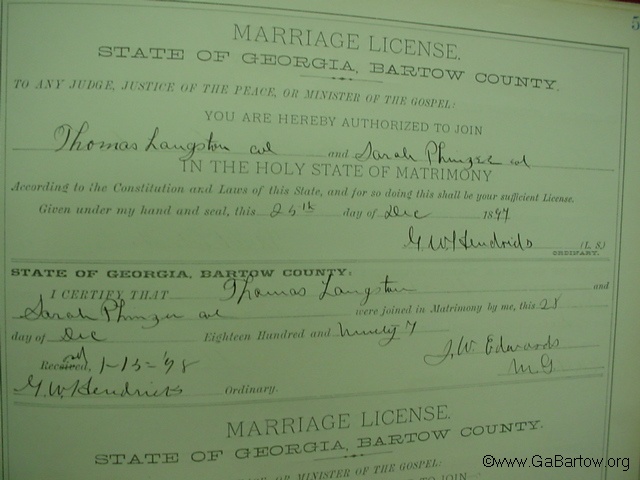 5
MARRIAGE LICENSE.
STATE OF GEORGIA, BARTOW COUNTY.
TO ANY JUDGE, JUSTICE OF THE PEACE, OR MINISTER OF THE GOSPEL:
YOU ARE HEREBY AUTHORIZED TO JOIN
Thomas Langston col and Sarah col
IN THE HOLY STATE OF MATRIMONY
According to the Constitution and Laws of this State, and for so doing this shall be your sufficient License.
Given under my hand and seal, this 25th day of Dec 1897
G. W. Hendricks (L. S.)
ORDINARY.
STATE OF GEORGIA, BARTOW COUNTY:
I CERTIFY THAT Thomas Langston and
Sarah col were joined in Matrimony by me, this 28
day of Dec Eighteen Hundred and Ninety 7
J. W. Edwards
M. G.
1-15-'98
G. W. Hendricks Ordinary.
MARRIAGE LICENSE.
STATE OF GEORGIA, BARTOW COUNTY.
OR MINISTER OF THE GOSPEL:
TO JOIN
©www.GaBartow.org